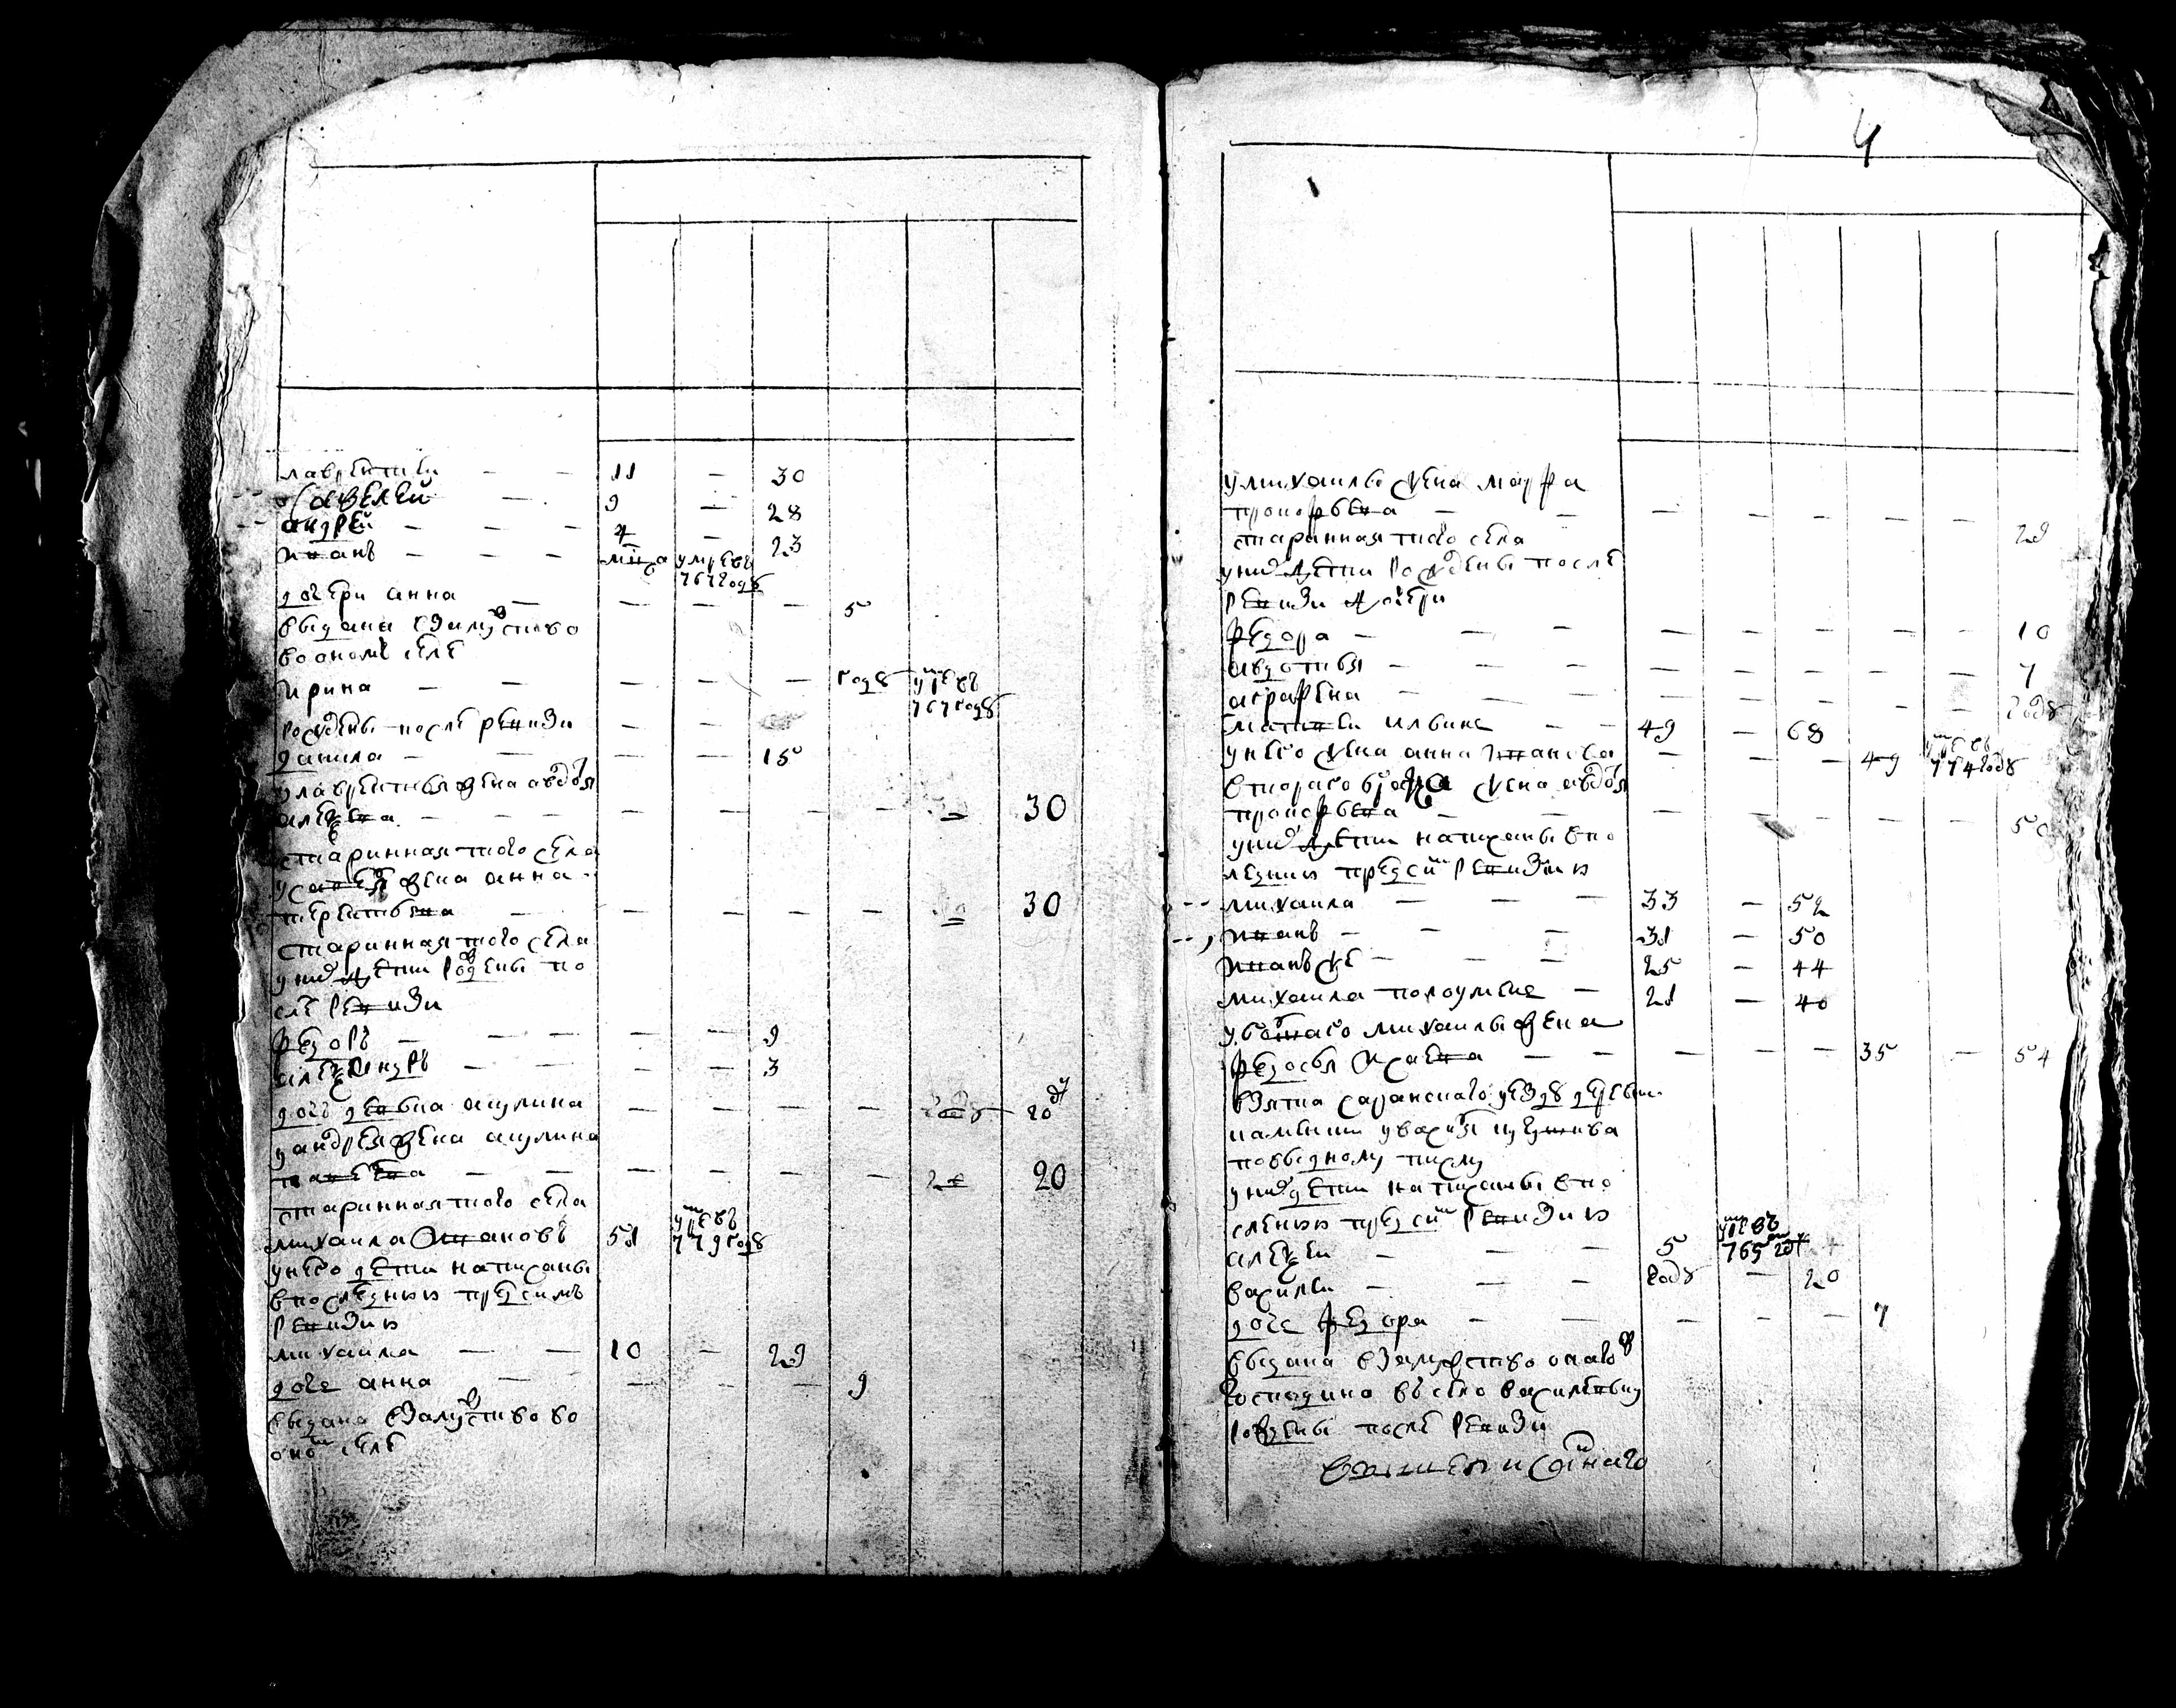 лаврентей — — 11 — 30
савелей — 9 — 28
андрей — — — 4 — 23
иванъ — — — умре въ 767 году
дочери анна — — — — 5
выдана взамужство
во оном селе
ирина — — — — — году умре въ 767 году
рождены после ревизи — —
данила — — — 15
у лаврентья жена авдотья
— — — — — — — 30
старинная того села
у савелья жена анна
терентьева — — — — — 30
старинная того села
у них дети рождены по
сле ревизи
федоръ — — — — — 9
александръ — — — 3
дочь девка акулина — — — — 20
у андрея жена акулина
— — — — — — 20
старинная того села
михаила ивановъ 51 умре въ 779 году
у него дети написаны
в последней пред сим
ревизии
михаила — — 10 — 29
дочь анна — — — — 9
выдана взамужство во
оном селе
4
у михаилы жена марфа
прокофьева — — — — — — — 29
старинная того села
у них дети рождены после
ревизи дочери
федора — — — — — — — — 10
авдотья — — — — — — — — 7
аграфена — — — — — — году
матвей ильинъ — — 49 — 68
у него жена анна иванова — — — 49 умре въ 774 году
втораго брака жена авдотья
прокофьева — — — — — — 50
у них дети написаны в по
ледней пред сим ревизии
михаила — — — 33 — 52
иванъ — — — 31 — 50
иванъ же — — — 25 — 44
михаила — 21 — 40
у большаго михаилы жена
федосья исаева — — — — — 35 — 54
взята саранскаго уезду деревни
по выводному писму
у них дети написаны в по
следней пред сим ревизии
алексей — — — 5 умре въ 765 году
василей — — — году — 20
дочь федора — — — — — 7
выдана взамужство онаго ж
господина въ село
рождены после ревизи